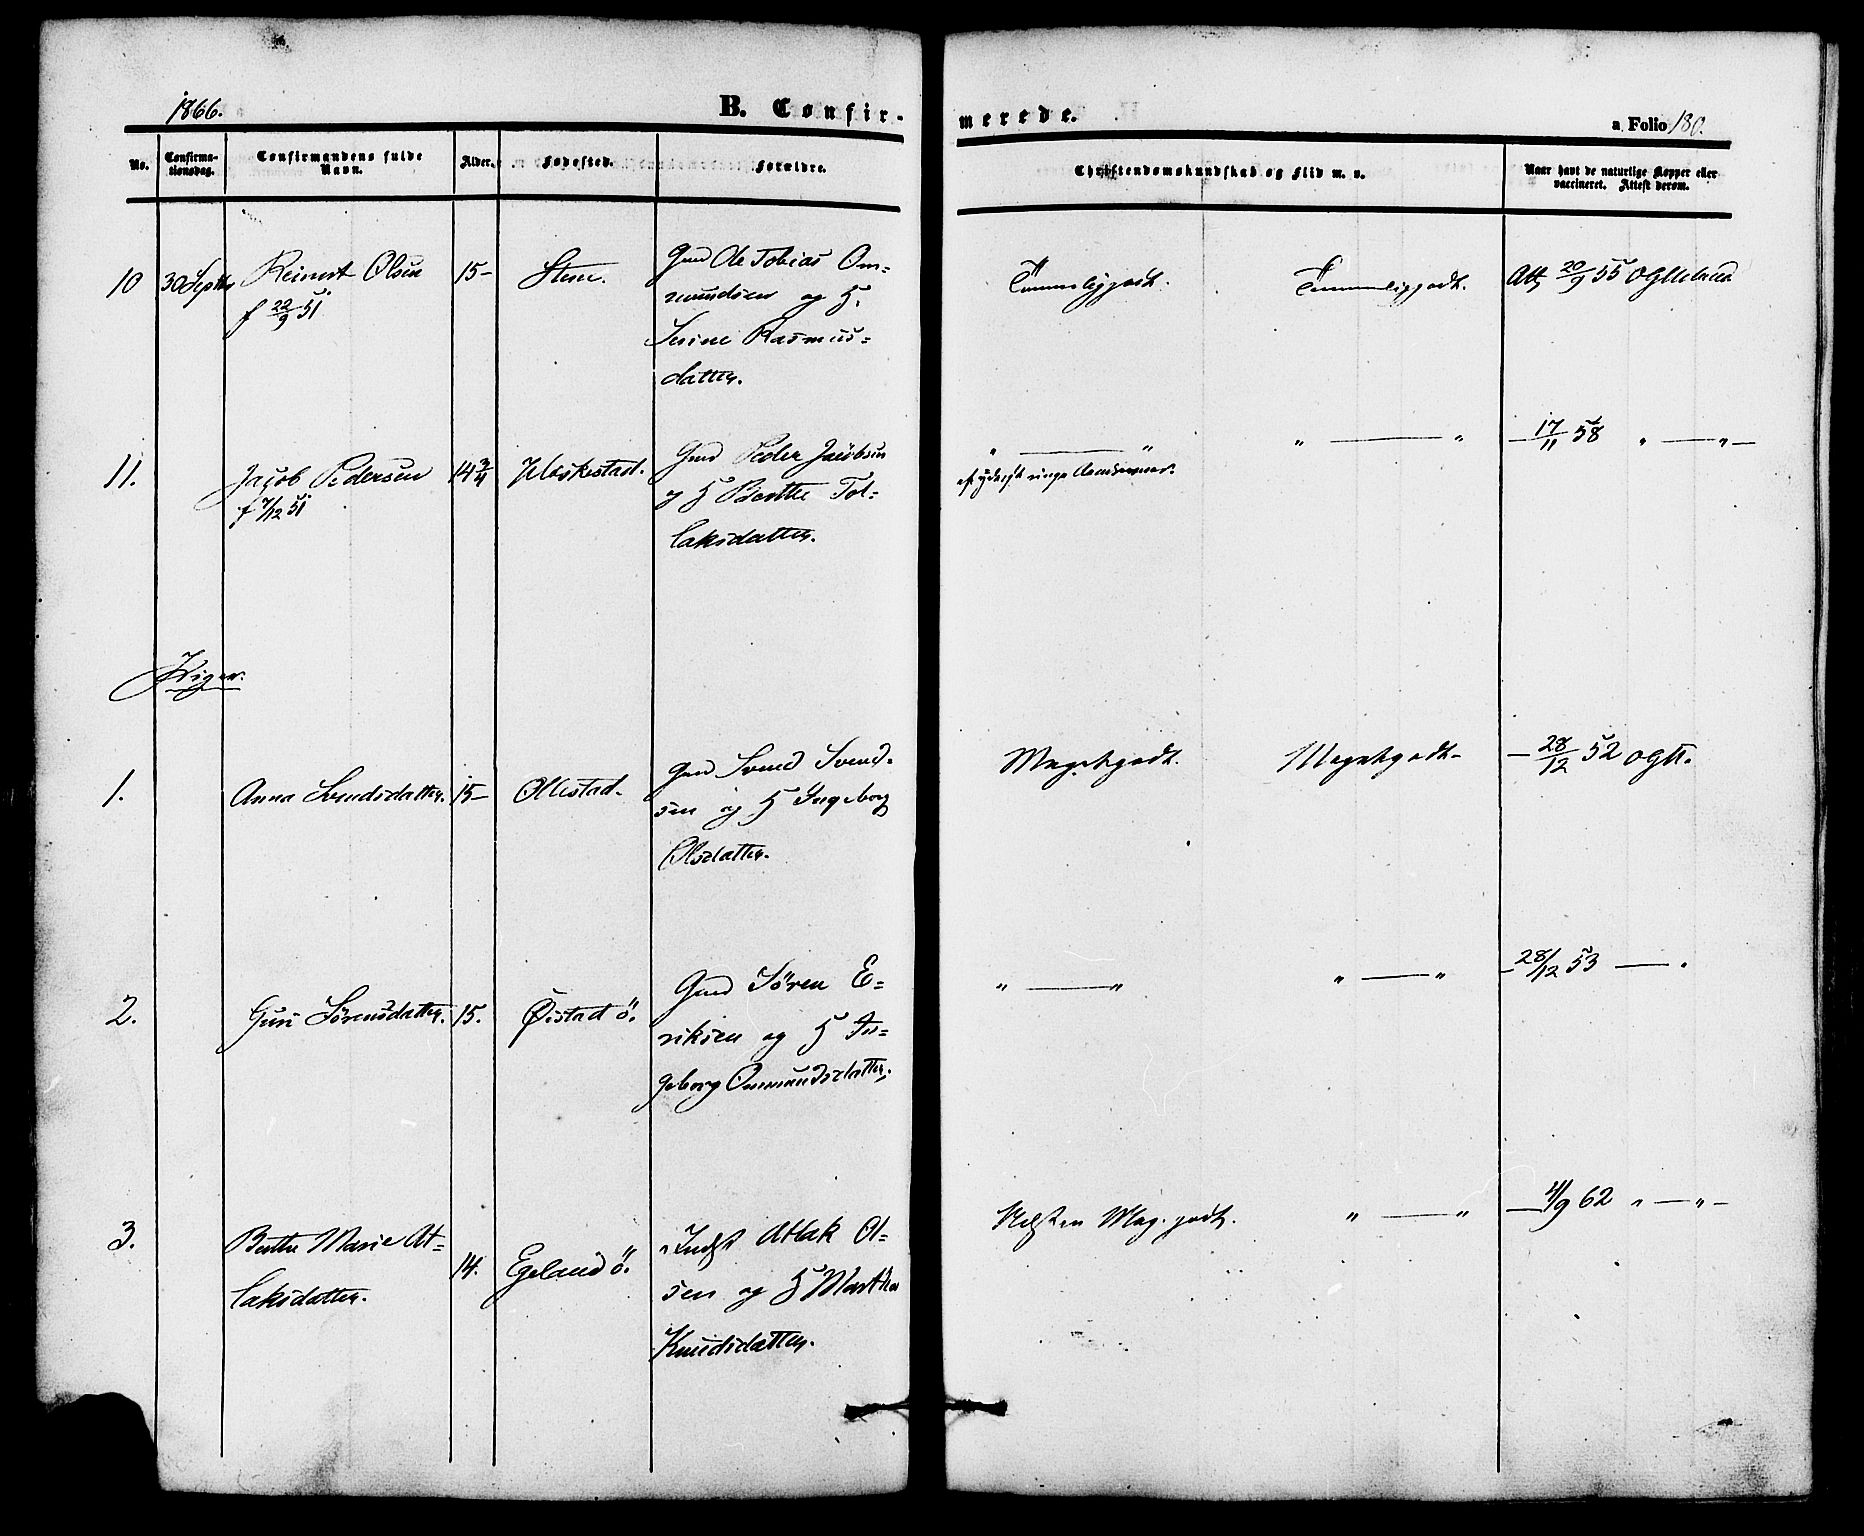 1866.
B. Confirmerede.
a Folio 180.
No. Confirmationsdag. Confirmandens fulde Navn. Alder. Fødested. Forældre. Christendomskundskab og Flid m. v. Naar havt de naturlige Kopper eller vaccineret. Attest derom.
10 30 Septbr Reinert Olsen 15- Stene. Gmd Ole Tobias Om-
f 22/9 51
mundsen og H.
Serine Rasmus=
datter.
Temmeliggodt. Temmeliggodt. Att 20/9 55 OGUeland
11. Jacob Pedersen 14 3/4 Hæskestad. Gmd Peder Jacobsen
f 7/12 51
og H Berthe Tol=
laksdatter.
" —— " " —— " — 17/11 58 " — " —
af yderst ringe
Piger.
1. Anna Svendsdatter. 15- Ollestad. Gmd Svend Svend-
sen og H Ingeborg
Olsdatter.
Megetgodt. Megetgodt. — 28/12 52 OGU.
2. Guri Sörensdatter. 15. Øistad ö. Gmd Sören E=
riksen og H In=
geborg Ommundsdatter.
" —— " " —— " — 28/12 53 — "
3. Berthe Marie At=
laksdatter. 14. Egeland ö. Indst Atlak Ol-
sen og H Martha
Knudsdatter.
Næsten Meg. godt. " —— " — 4/9 62 " — " —